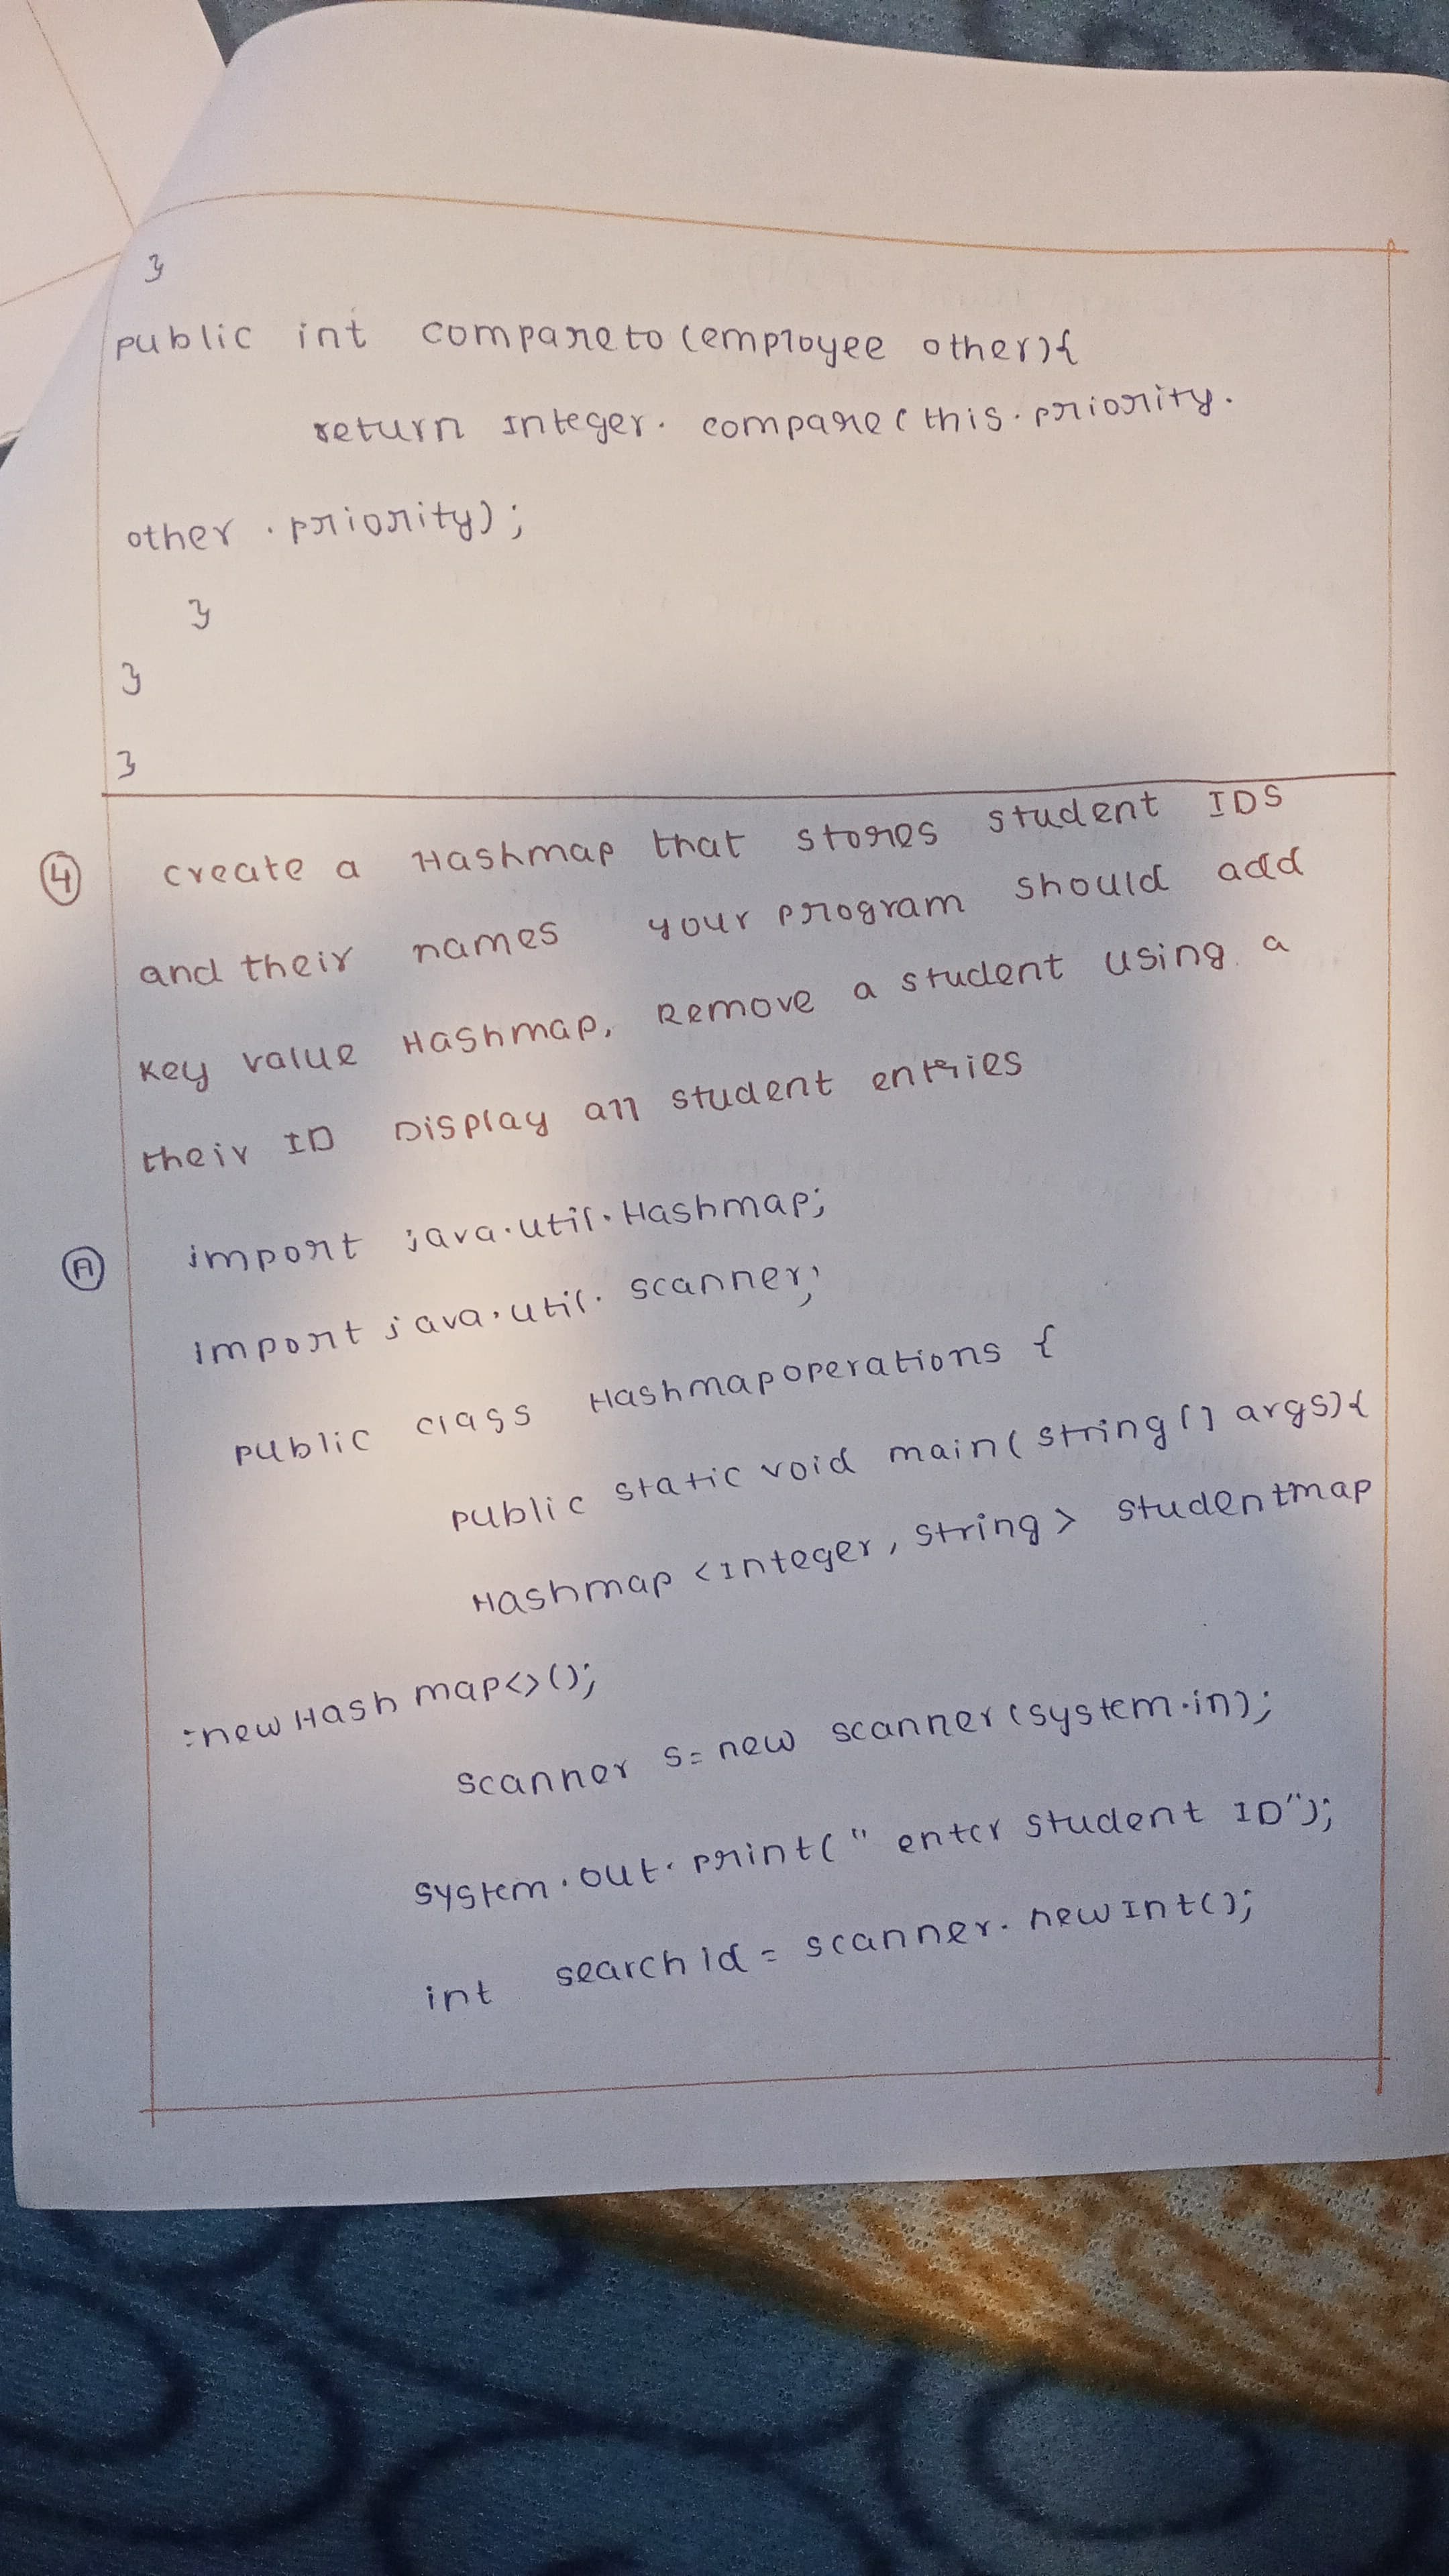 }
public int compareto(employee other){
return Integer. compare(this.priority.
other .priority);
}
}
}
④ create a Hashmap that stores student IDS
and their names your program should add
key value Hashmap, Remove a student using a
their ID Display all student entries
Ⓐ import java.util.Hashmap;
import java.util. scanner;
public class Hashmapoperations {
public static void main(string[] args){
Hashmap<Integer, string> studentmap
=new Hash map<>();
scanner s= new scanner(system.in);
system.out.print(" enter student ID");
int search id = scanner. new Int();